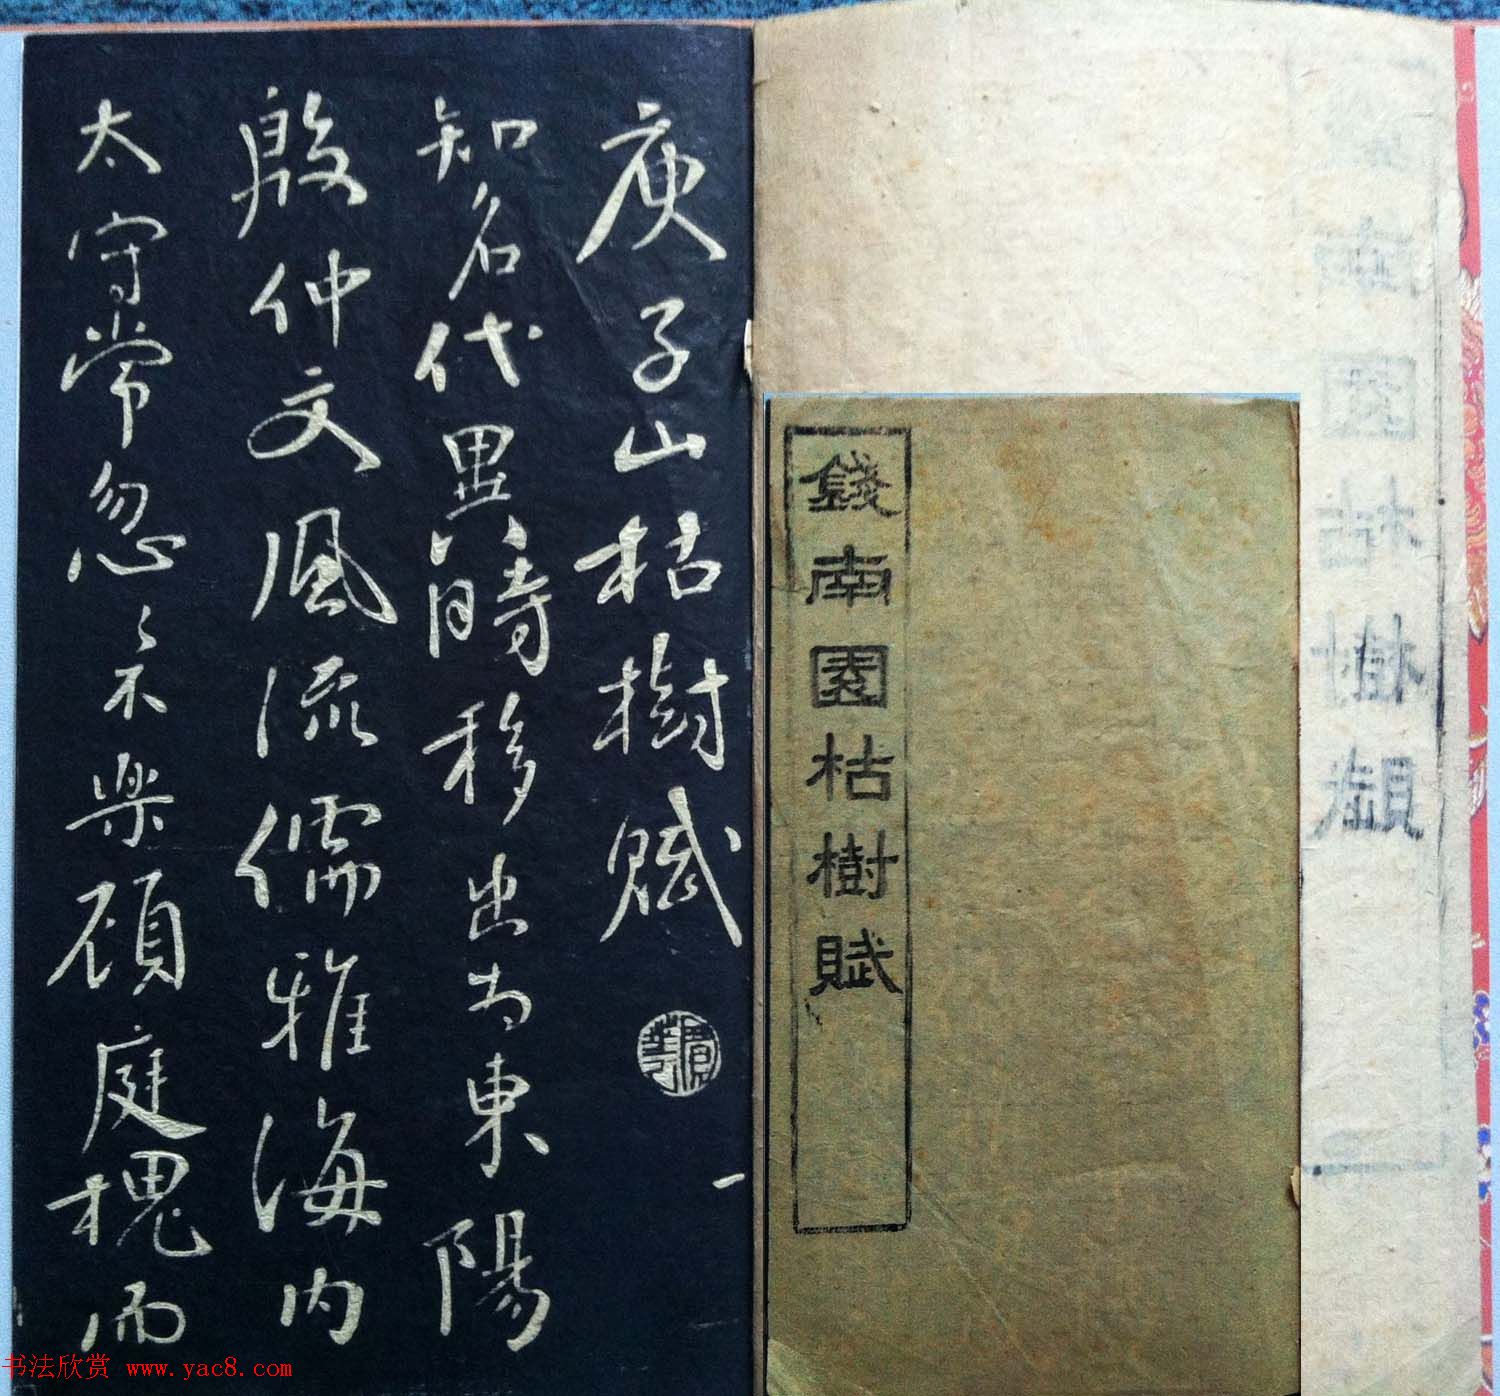 錢南園枯樹賦
庾子山枯樹賦
一
殷仲文風流儒雅海内
知名代異時移出為東陽
太守常忽忽不樂顧庭槐而
书法欣赏 www.yac8.com